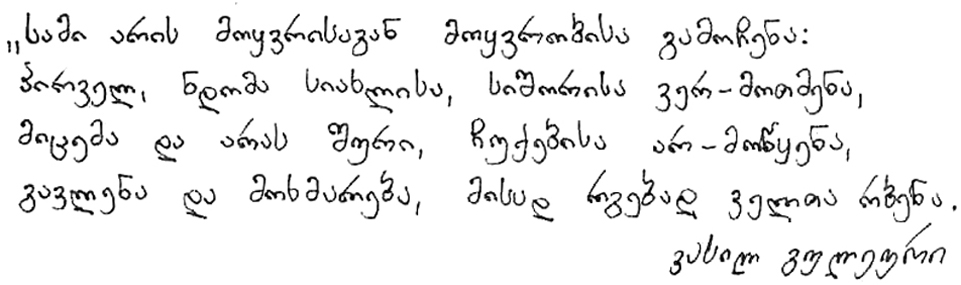 „სამი არის მოყვრისაგან მოყვრობისა გამოჩენა:
პირველ, ნდომა სიახლისა, სიშორისა ვერ-მოთმენა,
მიცემა და არას შური, ჩუქებისა არ-მოწყენა,
გავლენა და მოხმარება, მისად რგებად ველთა რბენა.
ვასილ გულეური